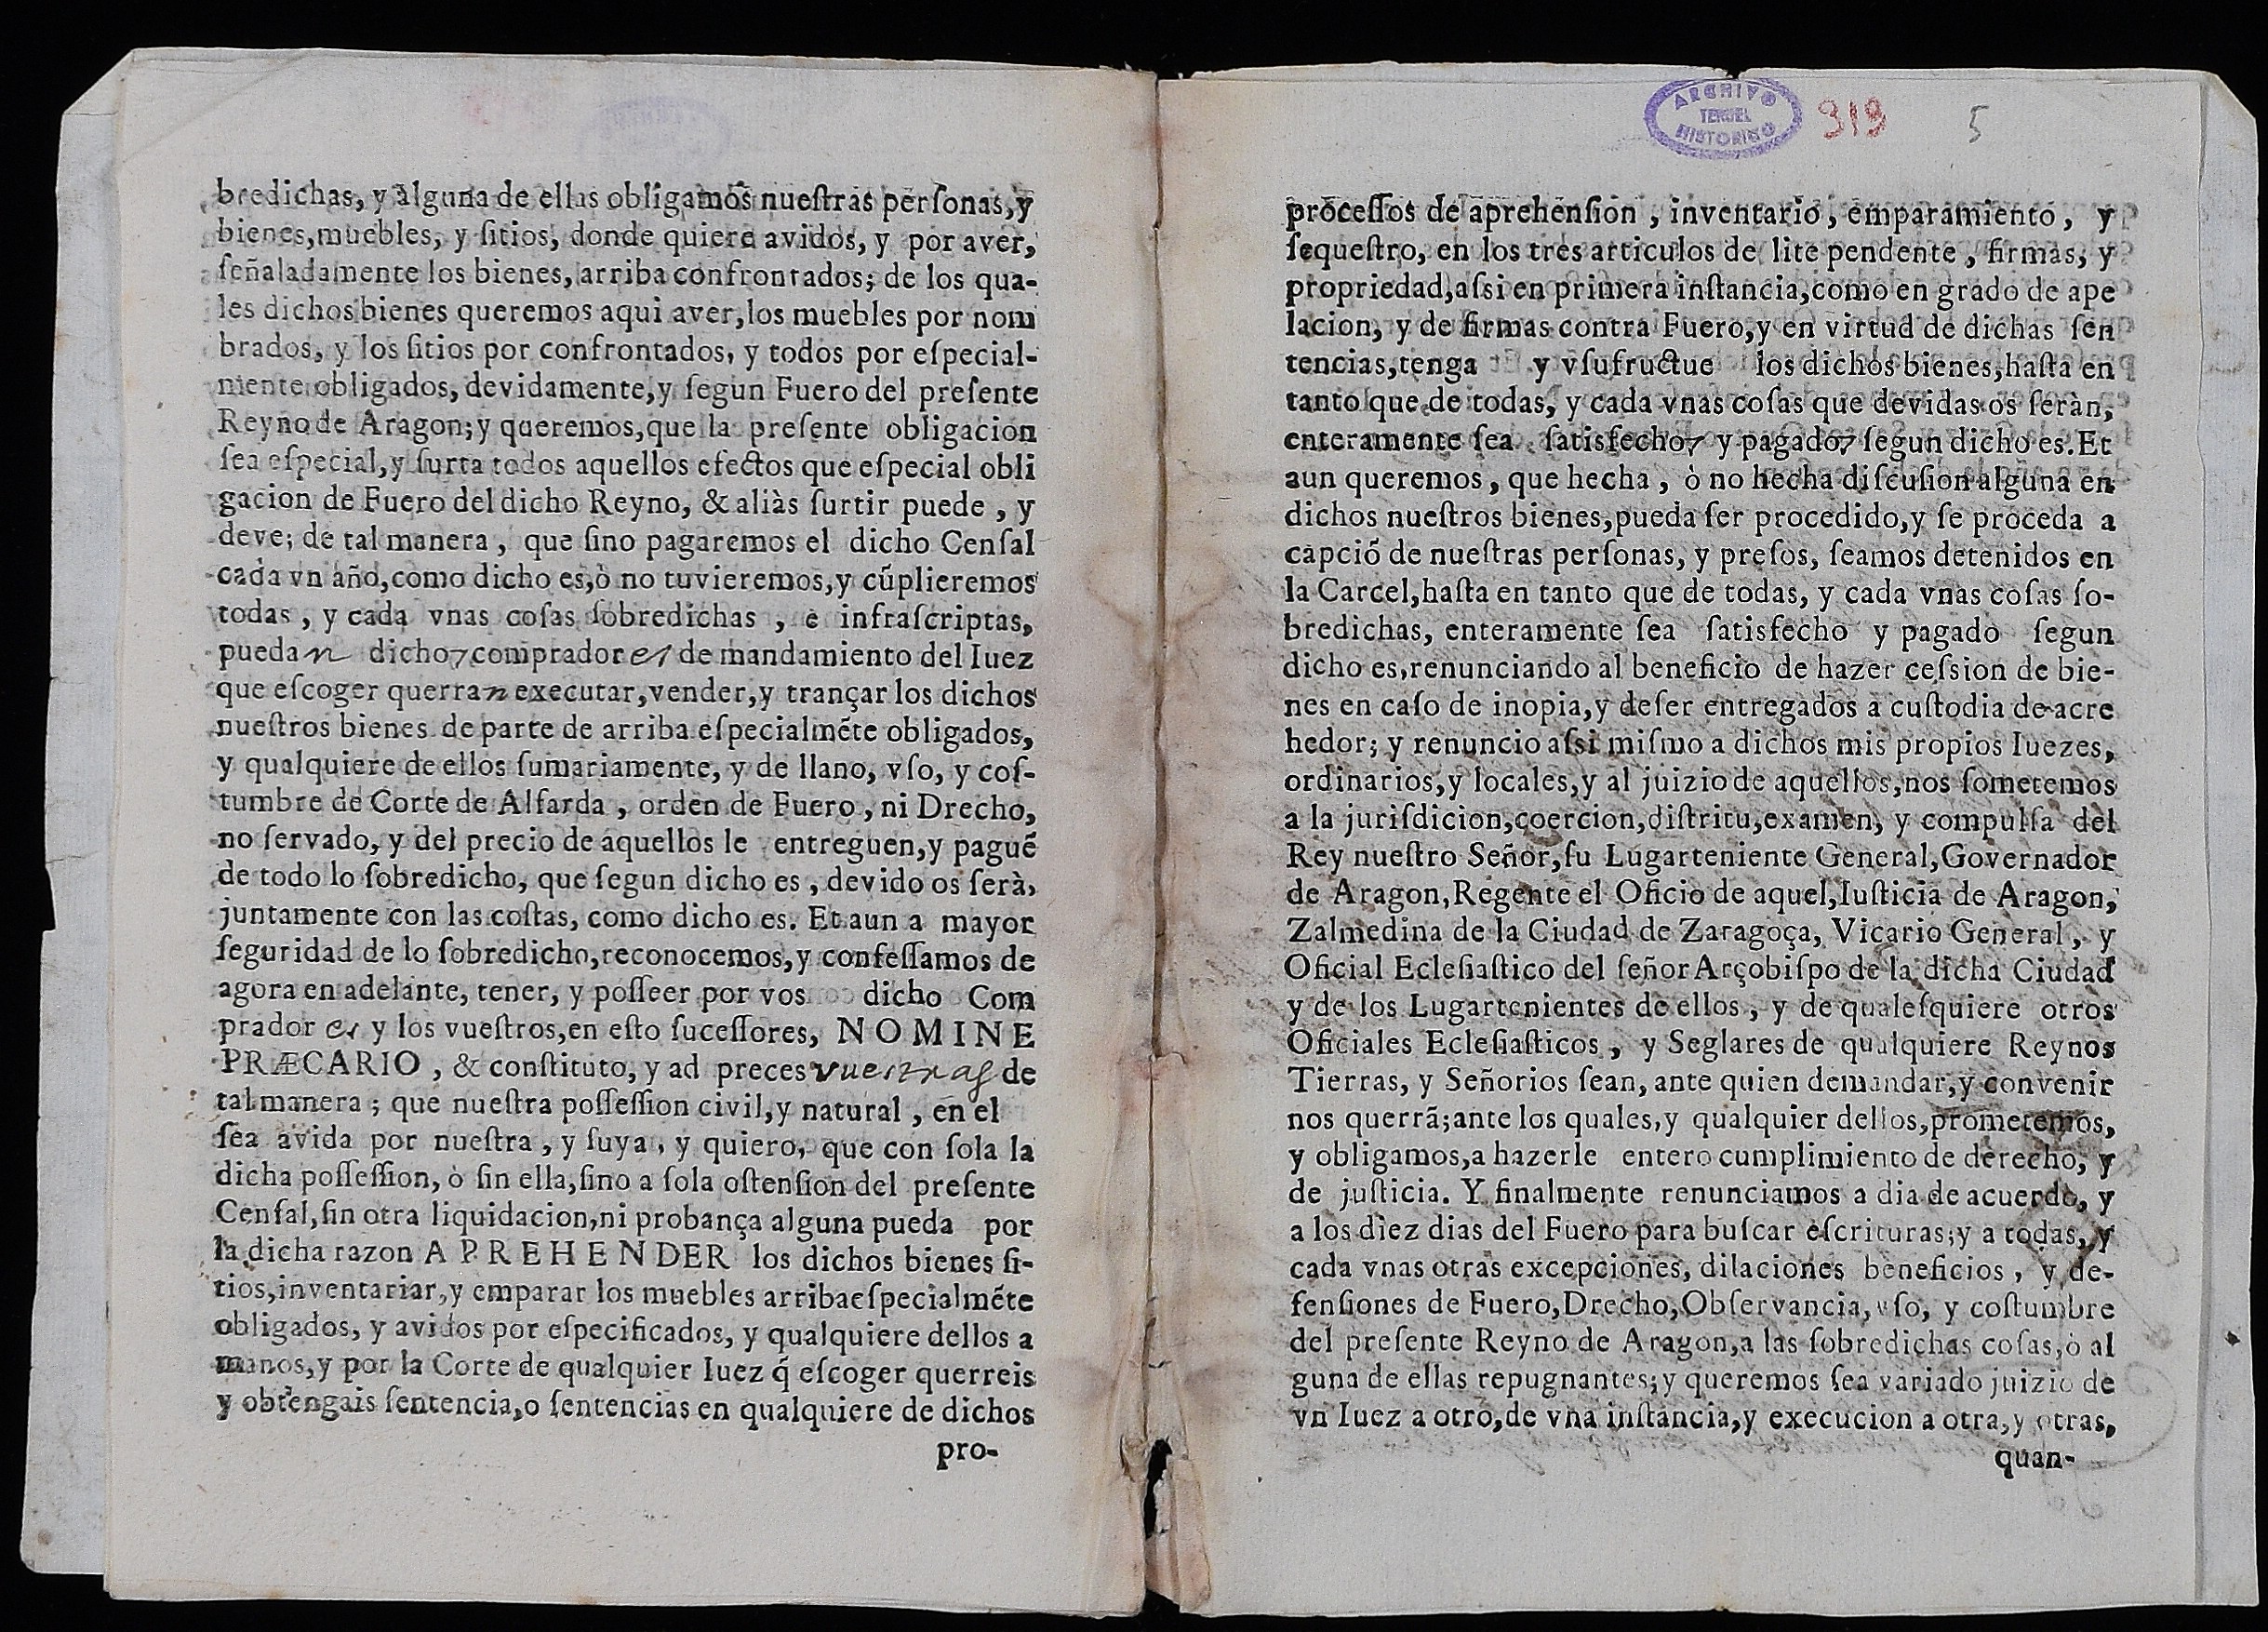 bredichas, y alguna de ellas obligamos nuestras personas, y
bienes, muebles, y sitios, donde quiere avidos, y por aver,
señaladamente los bienes, arriba confrontados; de los qua-
les dichos bienes queremos aqui aver, los muebles por nom
brados, y los sitios por confrontados, y todos por especial-
mente obligados, devidamente, y segun Fuero del presente
Reyno de Aragon; y queremos, que la presente obligacion
sea especial, y surta todos aquellos efectos que especial obli
gacion de Fuero del dicho Reyno, & aliàs surtir puede, y
deve; de tal manera, que sino pagaremos el dicho Censal
cada vn año, como dicho es, ò no tuvieremos, y cũplieremos
todas, y cada vnas cosas sobredichas, è infrascriptas,
puedan dichos compradores de mandamiento del Iuez
que escoger querran executar, vender, y trançar los dichos
nuestros bienes de parte de arriba especialmẽte obligados,
y qualquiere de ellos sumariamente, y de llano, vso, y cos-
tumbre de Corte de Alfarda, orden de Fuero, ni Drecho,
no servado, y del precio de aquellos le entreguen, y paguẽ
de todo lo sobredicho, que segun dicho es, devido os serà,
juntamente con las costas, como dicho es. Et aun a mayor
seguridad de lo sobredicho, reconocemos, y confessamos de
agora en adelante, tener, y posseer por vos dicho Com
prador es y los vuestros, en esto sucessores, NOMINE
PRÆCARIO, & constituto, y ad preces vuestras de
tal manera; que nuestra possession civil, y natural, en el
sea avida por nuestra, y suya, y quiero, que con sola la
dicha possession, ò sin ella, sino a sola ostension del presente
Censal, sin otra liquidacion, ni probança alguna pueda por
la dicha razon APREHENDER los dichos bienes si-
tios, inventariar, y emparar los muebles arriba especialmẽte
obligados, y avidos por especificados, y qualquiere dellos a
manos, y por la Corte de qualquier Iuez q̃ escoger querreis
y obtengais sentencia, o sentencias en qualquiere de dichos
pro-
ARCHIVO
TERUEL
HISTORICO
319 5
processos de aprehension, inventario, emparamiento, y
sequestro, en los tres articulos de lite pendente, firmas, y
propriedad, assi en primera instancia, como en grado de ape
lacion, y de firmas contra Fuero, y en virtud de dichas sen
tencias, tenga y vsufructue los dichos bienes, hasta en
tanto que de todas, y cada vnas cosas que devidas os seràn,
enteramente sea satisfechos y pagados segun dicho es. Et
aun queremos, que hecha, ò no hecha discusion alguna en
dichos nuestros bienes, pueda ser procedido, y se proceda a
capciõ de nuestras personas, y presos, seamos detenidos en
la Carcel, hasta en tanto que de todas, y cada vnas cosas so-
bredichas, enteramente sea satisfecho y pagado segun
dicho es, renunciando al beneficio de hazer cession de bie-
nes en caso de inopia, y de ser entregados a custodia de acre
hedor; y renuncio assi mismo a dichos mis propios Iuezes,
ordinarios, y locales, y al juizio de aquellos, nos sometemos
a la jurisdicion, coercion, distritu, examen, y compulsa del
Rey nuestro Señor, su Lugarteniente General, Governador
de Aragon, Regente el Oficio de aquel, Iusticia de Aragon,
Zalmedina de la Ciudad de Zaragoça, Vicario General, y
Oficial Eclesiastico del señor Arçobispo de la dicha Ciudad
y de los Lugartenientes de ellos, y de qualesquiere otros
Oficiales Eclesiasticos, y Seglares de qualquiere Reynos
Tierras, y Señorios sean, ante quien demandar, y convenir
nos querrã; ante los quales, y qualquier dellos, prometemos,
y obligamos, a hazerle entero cumplimiento de derecho, y
de justicia. Y finalmente renunciamos a dia de acuerdo, y
a los diez dias del Fuero para buscar escrituras; y a todas, y
cada vnas otras excepciones, dilaciones beneficios, y de-
fensiones de Fuero, Drecho, Observancia, vso, y costumbre
del presente Reyno de Aragon, a las sobredichas cosas, ò al
guna de ellas repugnantes; y queremos sea variado juizio de
vn Iuez a otro, de vna instancia, y execucion a otra, y otras,
quan-